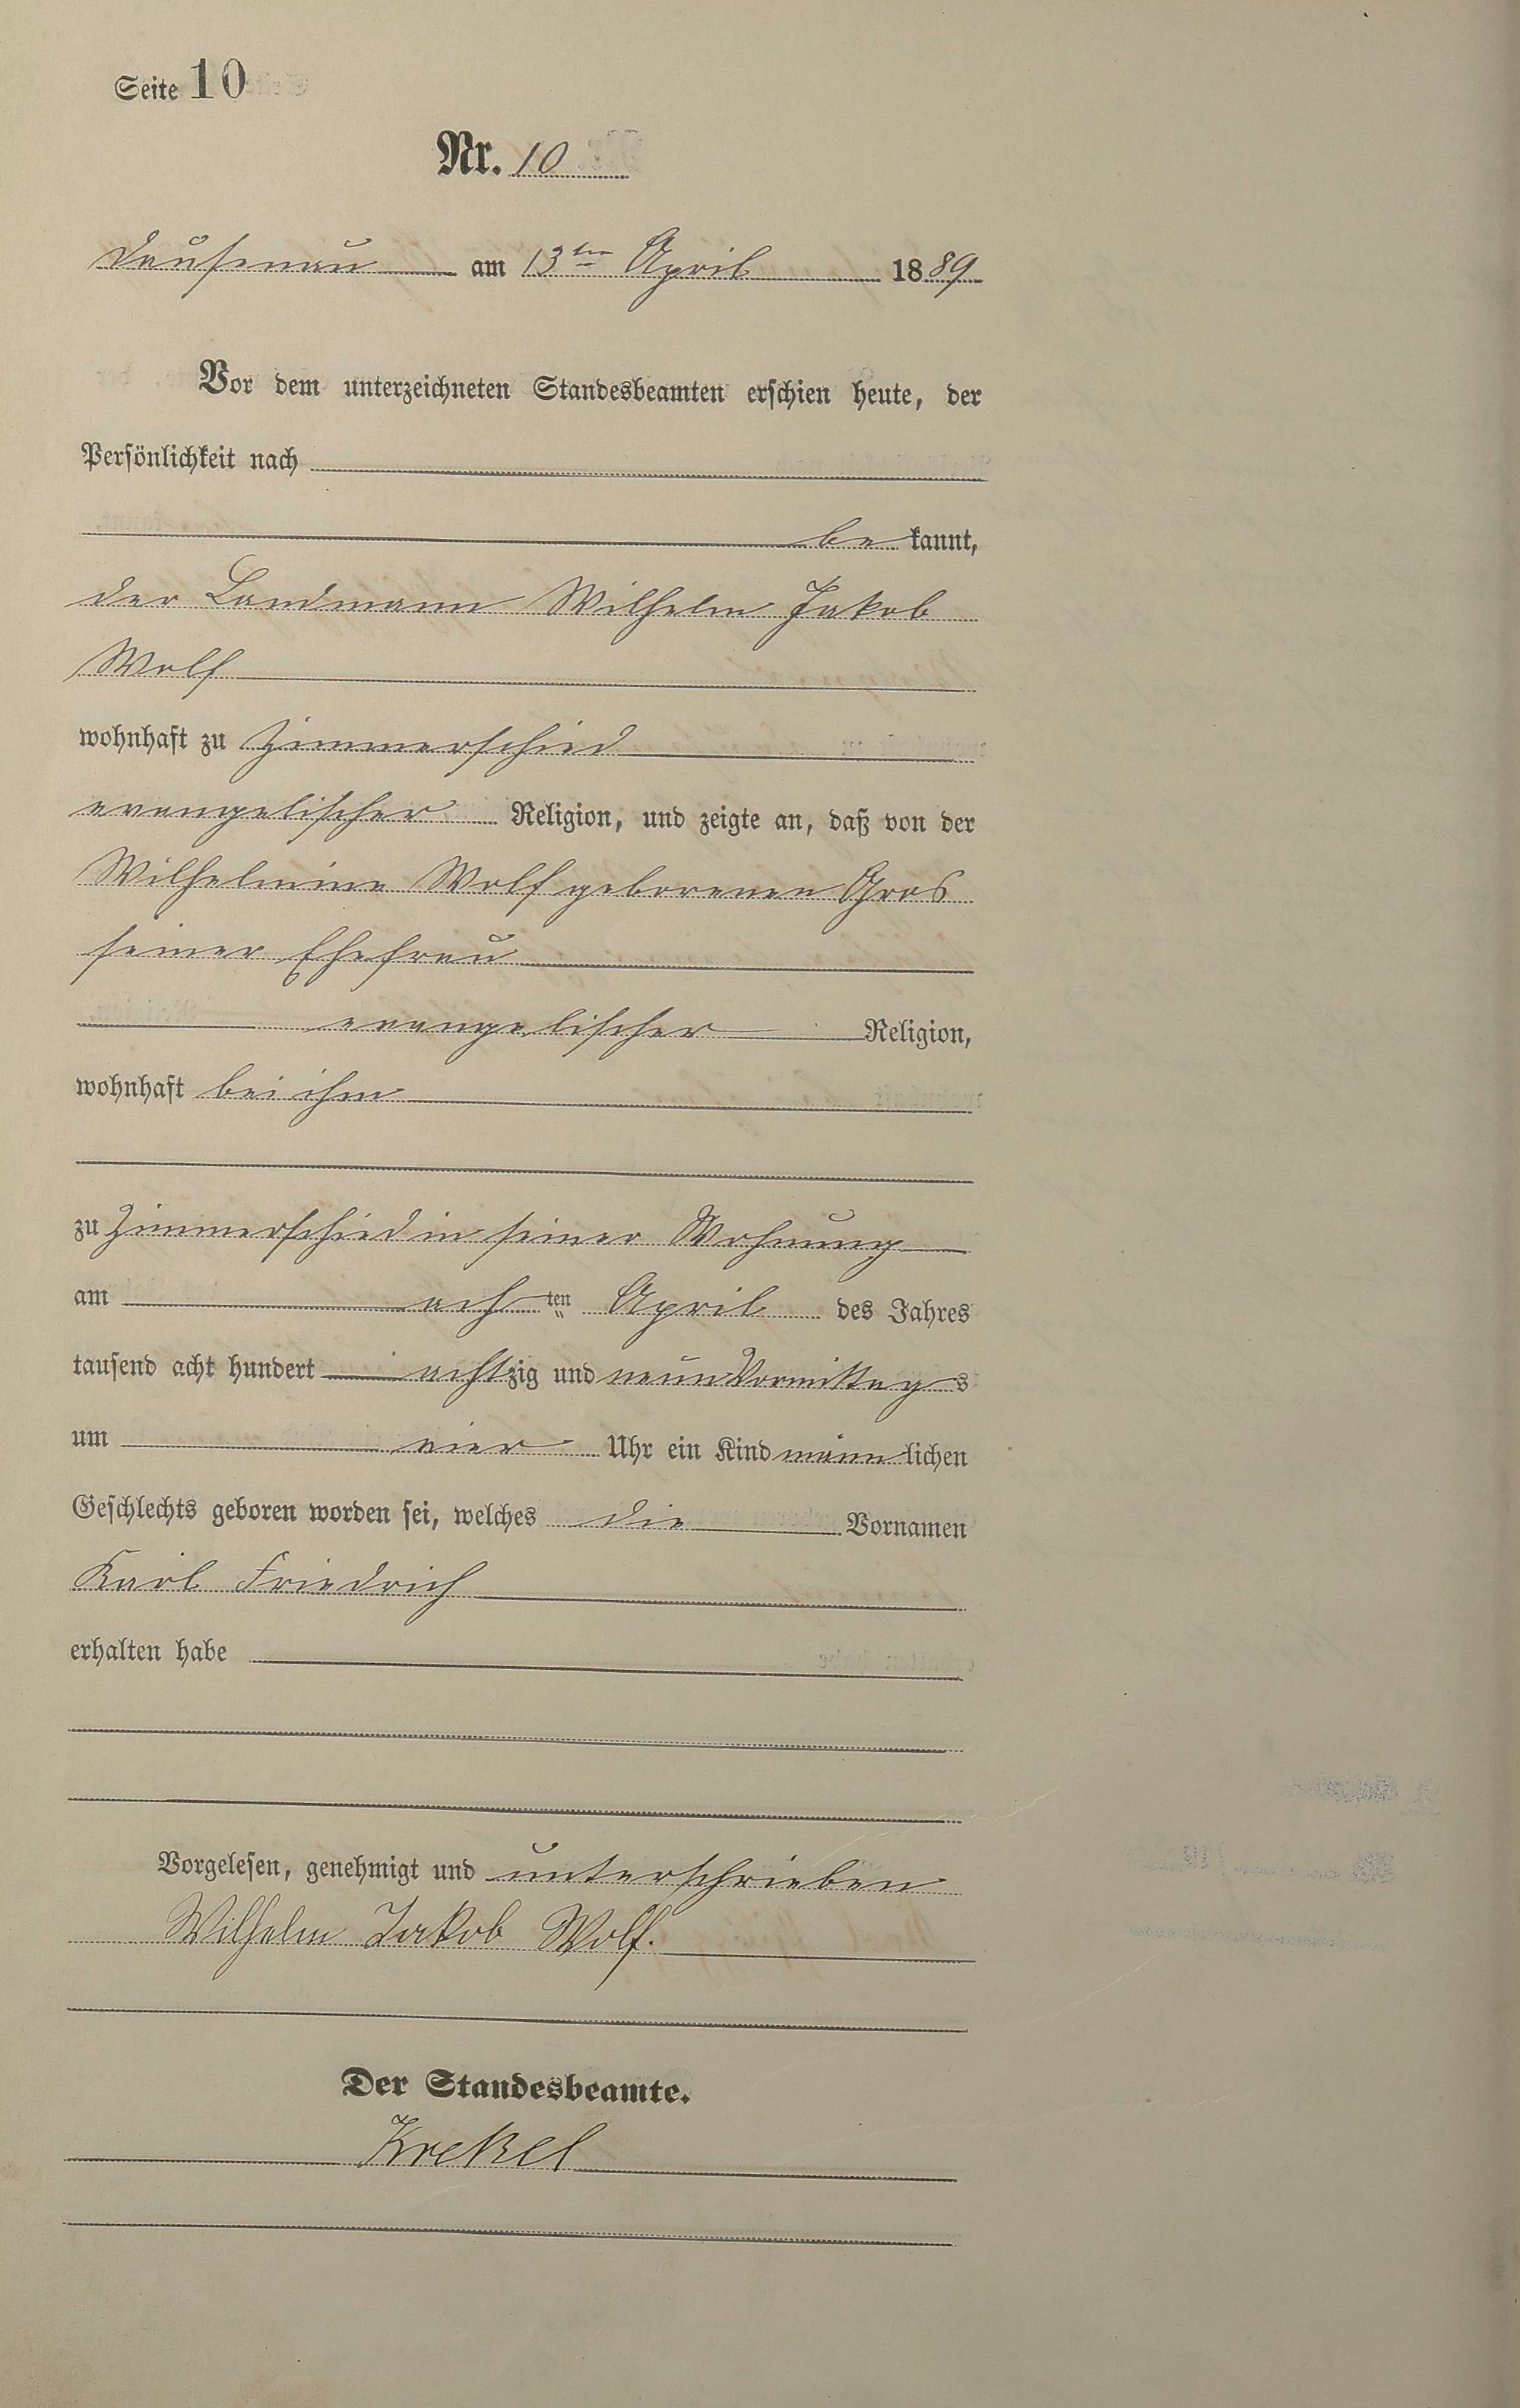 Seite 10
Nr. 10
Dausenau am 13ten April 1889
Vor dem unterzeichneten Standesbeamten erschien heute, der
Persönlichkeit nach
bekannt,
der Landmann Wilhelm Jakob
Wolf
wohnhaft zu Zimmerschied
evangelischer Religion, und zeigte an, daß von der
Wilhelmine Wolf geborenen Gros
seiner Ehefrau
evangelischer Religion,
wohnhaft bei ihm
zu Zimmerschied in seiner Wohnung
am achten April des Jahres
tausend acht hundert achtzig und neun Vormittags
um vier Uhr ein Kind männlichen
Geschlechts geboren worden sei, welches die Vornamen
Karl Friedrich
erhalten habe
Vorgelesen, genehmigt und unterschrieben
Wilhelm Jakob Wolf.
Der Standesbeamte.
Krekel